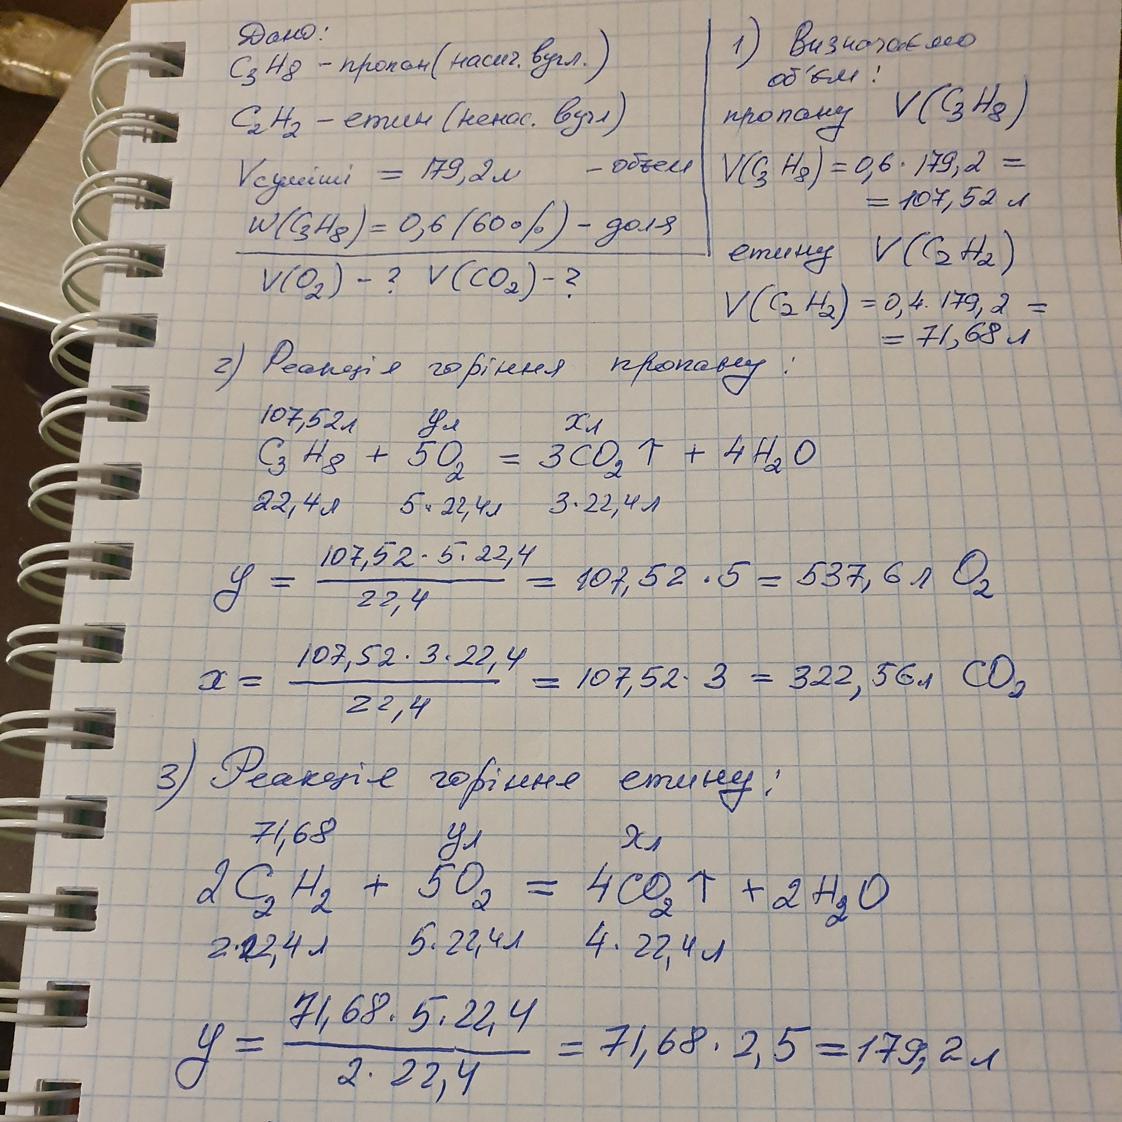 Дано:
C₃H₈ – пропан (насич. вугл.)
C₂H₂ – етин (ненас. вугл)
Vсуміші = 179,2 л – объем
W(C₃H₈) = 0,6 (60%) – доля
V(O₂) – ? V(CO₂) – ?
1) Визначаємо
об'єм:
пропану V(C₃H₈)
V(C₃H₈) = 0,6 · 179,2 =
= 107,52 л
етину V(C₂H₂)
V(C₂H₂) = 0,4 · 179,2 =
= 71,68 л
2) Реакція горіння пропану:
107,52л yл xл
C₃H₈ + 5O₂ = 3CO₂↑ + 4H₂O
22,4л 5·22,4л 3·22,4л
y = 107,52 · 5 · 22,4 / 22,4 = 107,52 · 5 = 537,6 л O₂
x = 107,52 · 3 · 22,4 / 22,4 = 107,52 · 3 = 322,56л CO₂
3) Реакція горіння етину:
71,68 yл xл
2C₂H₂ + 5O₂ = 4CO₂↑ + 2H₂O
2·22,4л 5·22,4л 4·22,4л
y = 71,68 · 5 · 22,4 / 2 · 22,4 = 71,68 · 2,5 = 179,2 л